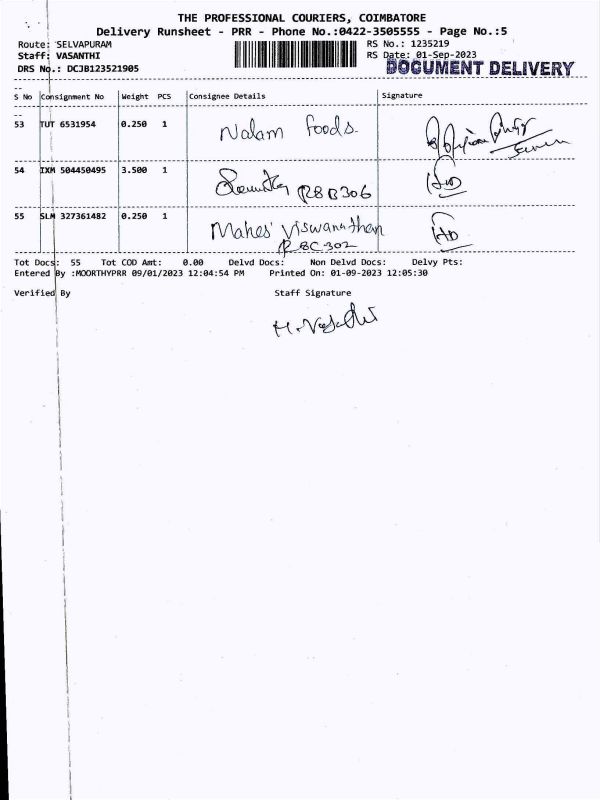 THE PROFESSIONAL COURIERS, COIMBATORE
Delivery Runsheet - PRR - Phone No.:0422-3505555 - Page No.:5
Route: SELVAPURAM RS No.: 1235219
Staff: VASANTHI RS Date: 01-Sep-2023
DRS No.: DCJB123521905 DOCUMENT DELIVERY
S No Consignment No Weight PCS Consignee Details Signature
53 TUT 6531954 0.250 1 Nalam Foods.
54 IXM 504450495 3.500 1 RSB306
55 SLM 327361482 0.250 1 Mahes Viswanathan
RBC 302
Tot Docs: 55 Tot COD Amt: 0.00 Delvd Docs: Non Delvd Docs: Delvy Pts:
Entered By :MOORTHYPRR 09/01/2023 12:04:54 PM Printed On: 01-09-2023 12:05:30
Verified By Staff Signature